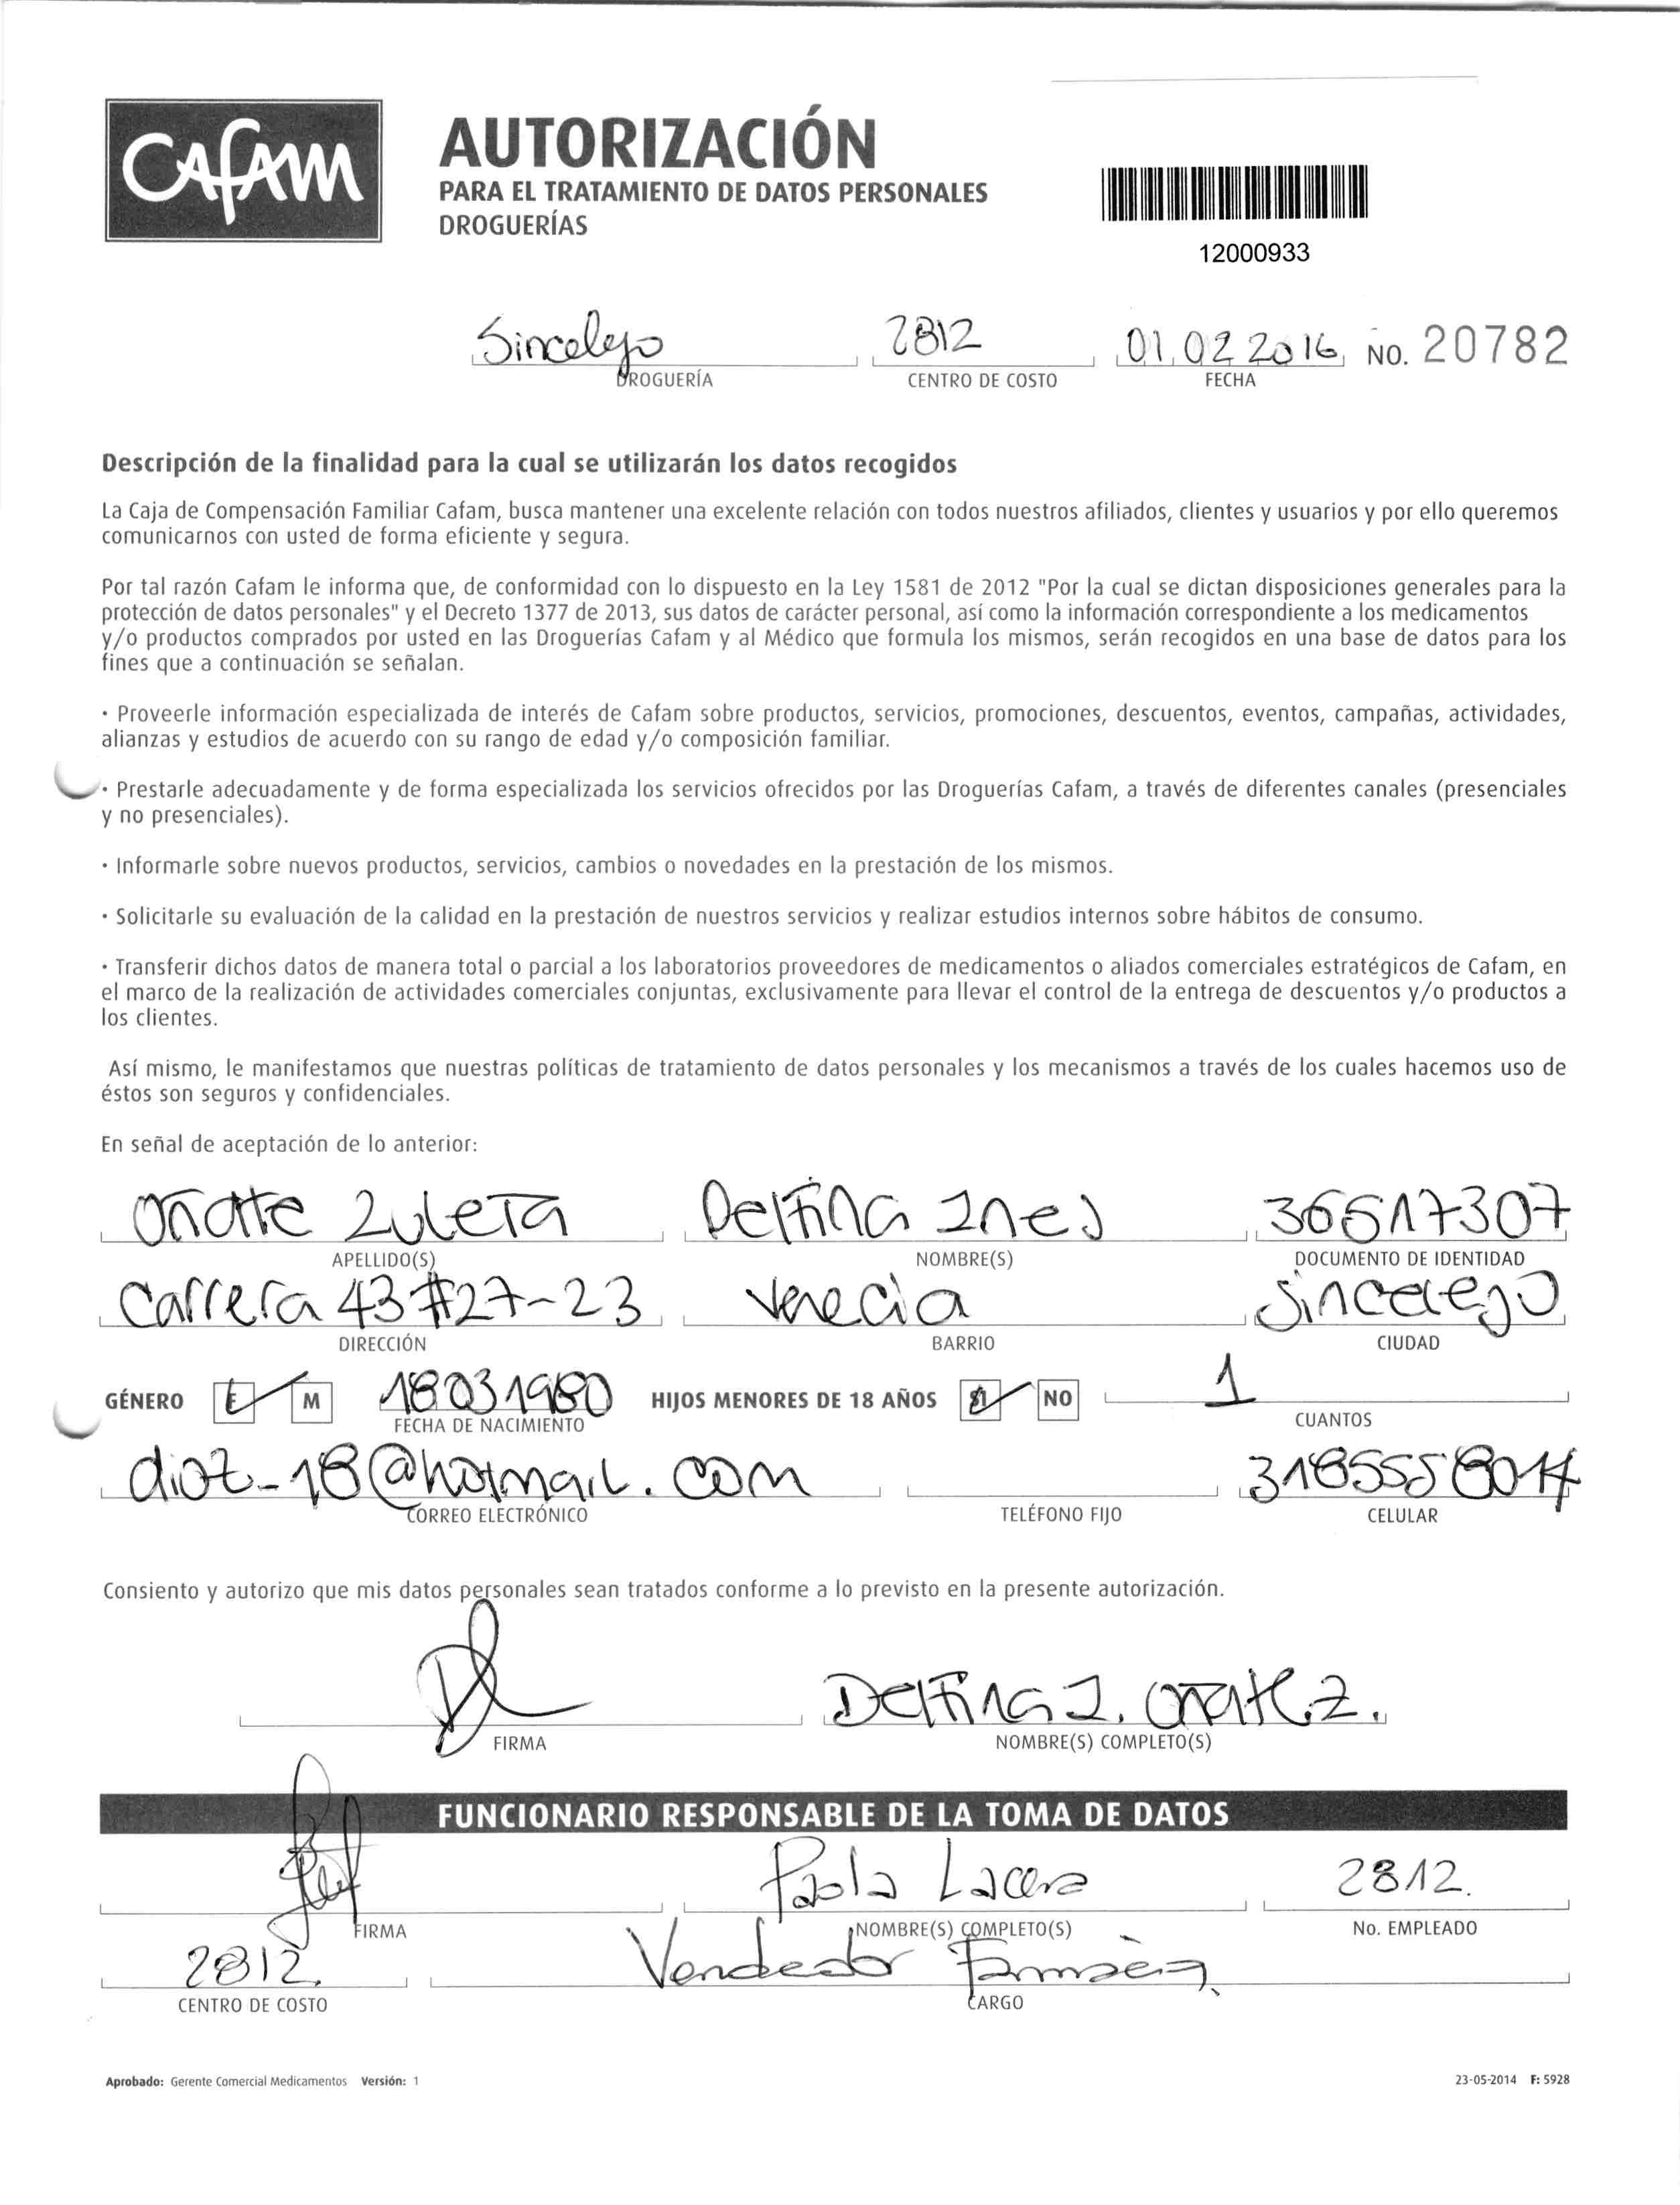 CAFAM
AUTORIZACIÓN
PARA EL TRATAMIENTO DE DATOS PERSONALES
DROGUERÍAS
12000933
Sincelejo 2812 01 02 2016 NO. 20782
DROGUERÍA CENTRO DE COSTO FECHA
Descripción de la finalidad para la cual se utilizarán los datos recogidos
La Caja de Compensación Familiar Cafam, busca mantener una excelente relación con todos nuestros afiliados, clientes y usuarios y por ello queremos
comunicarnos con usted de forma eficiente y segura.
Por tal razón Cafam le informa que, de conformidad con lo dispuesto en la Ley 1581 de 2012 "Por la cual se dictan disposiciones generales para la
protección de datos personales" y el Decreto 1377 de 2013, sus datos de carácter personal, así como la información correspondiente a los medicamentos
y/o productos comprados por usted en las Droguerías Cafam y al Médico que formula los mismos, serán recogidos en una base de datos para los
fines que a continuación se señalan.
· Proveerle información especializada de interés de Cafam sobre productos, servicios, promociones, descuentos, eventos, campañas, actividades,
alianzas y estudios de acuerdo con su rango de edad y/o composición familiar.
· Prestarle adecuadamente y de forma especializada los servicios ofrecidos por las Droguerías Cafam, a través de diferentes canales (presenciales
y no presenciales).
· Informarle sobre nuevos productos, servicios, cambios o novedades en la prestación de los mismos.
· Solicitarle su evaluación de la calidad en la prestación de nuestros servicios y realizar estudios internos sobre hábitos de consumo.
· Transferir dichos datos de manera total o parcial a los laboratorios proveedores de medicamentos o aliados comerciales estratégicos de Cafam, en
el marco de la realización de actividades comerciales conjuntas, exclusivamente para llevar el control de la entrega de descuentos y/o productos a
los clientes.
Así mismo, le manifestamos que nuestras políticas de tratamiento de datos personales y los mecanismos a través de los cuales hacemos uso de
éstos son seguros y confidenciales.
En señal de aceptación de lo anterior:
Oñatte Zuleta Delfina Ines 36617307
APELLIDO(S) NOMBRE(S) DOCUMENTO DE IDENTIDAD
Carrera 43 #27-23 Venecia Sincelejo
DIRECCIÓN BARRIO CIUDAD
GÉNERO F M 18031980 HIJOS MENORES DE 18 AÑOS SI NO 1
FECHA DE NACIMIENTO CUANTOS
dioz-18@hotmail.com 3185558014
CORREO ELECTRÓNICO TELÉFONO FIJO CELULAR
Consiento y autorizo que mis datos personales sean tratados conforme a lo previsto en la presente autorización.
Delfina I. Oñatte Z.
FIRMA NOMBRE(S) COMPLETO(S)
FUNCIONARIO RESPONSABLE DE LA TOMA DE DATOS
Paola 2812.
FIRMA NOMBRE(S) COMPLETO(S) No. EMPLEADO
2812. Vendedor
CENTRO DE COSTO CARGO
Aprobado: Gerente Comercial Medicamentos Versión: 1 23-05-2014 F: 5928